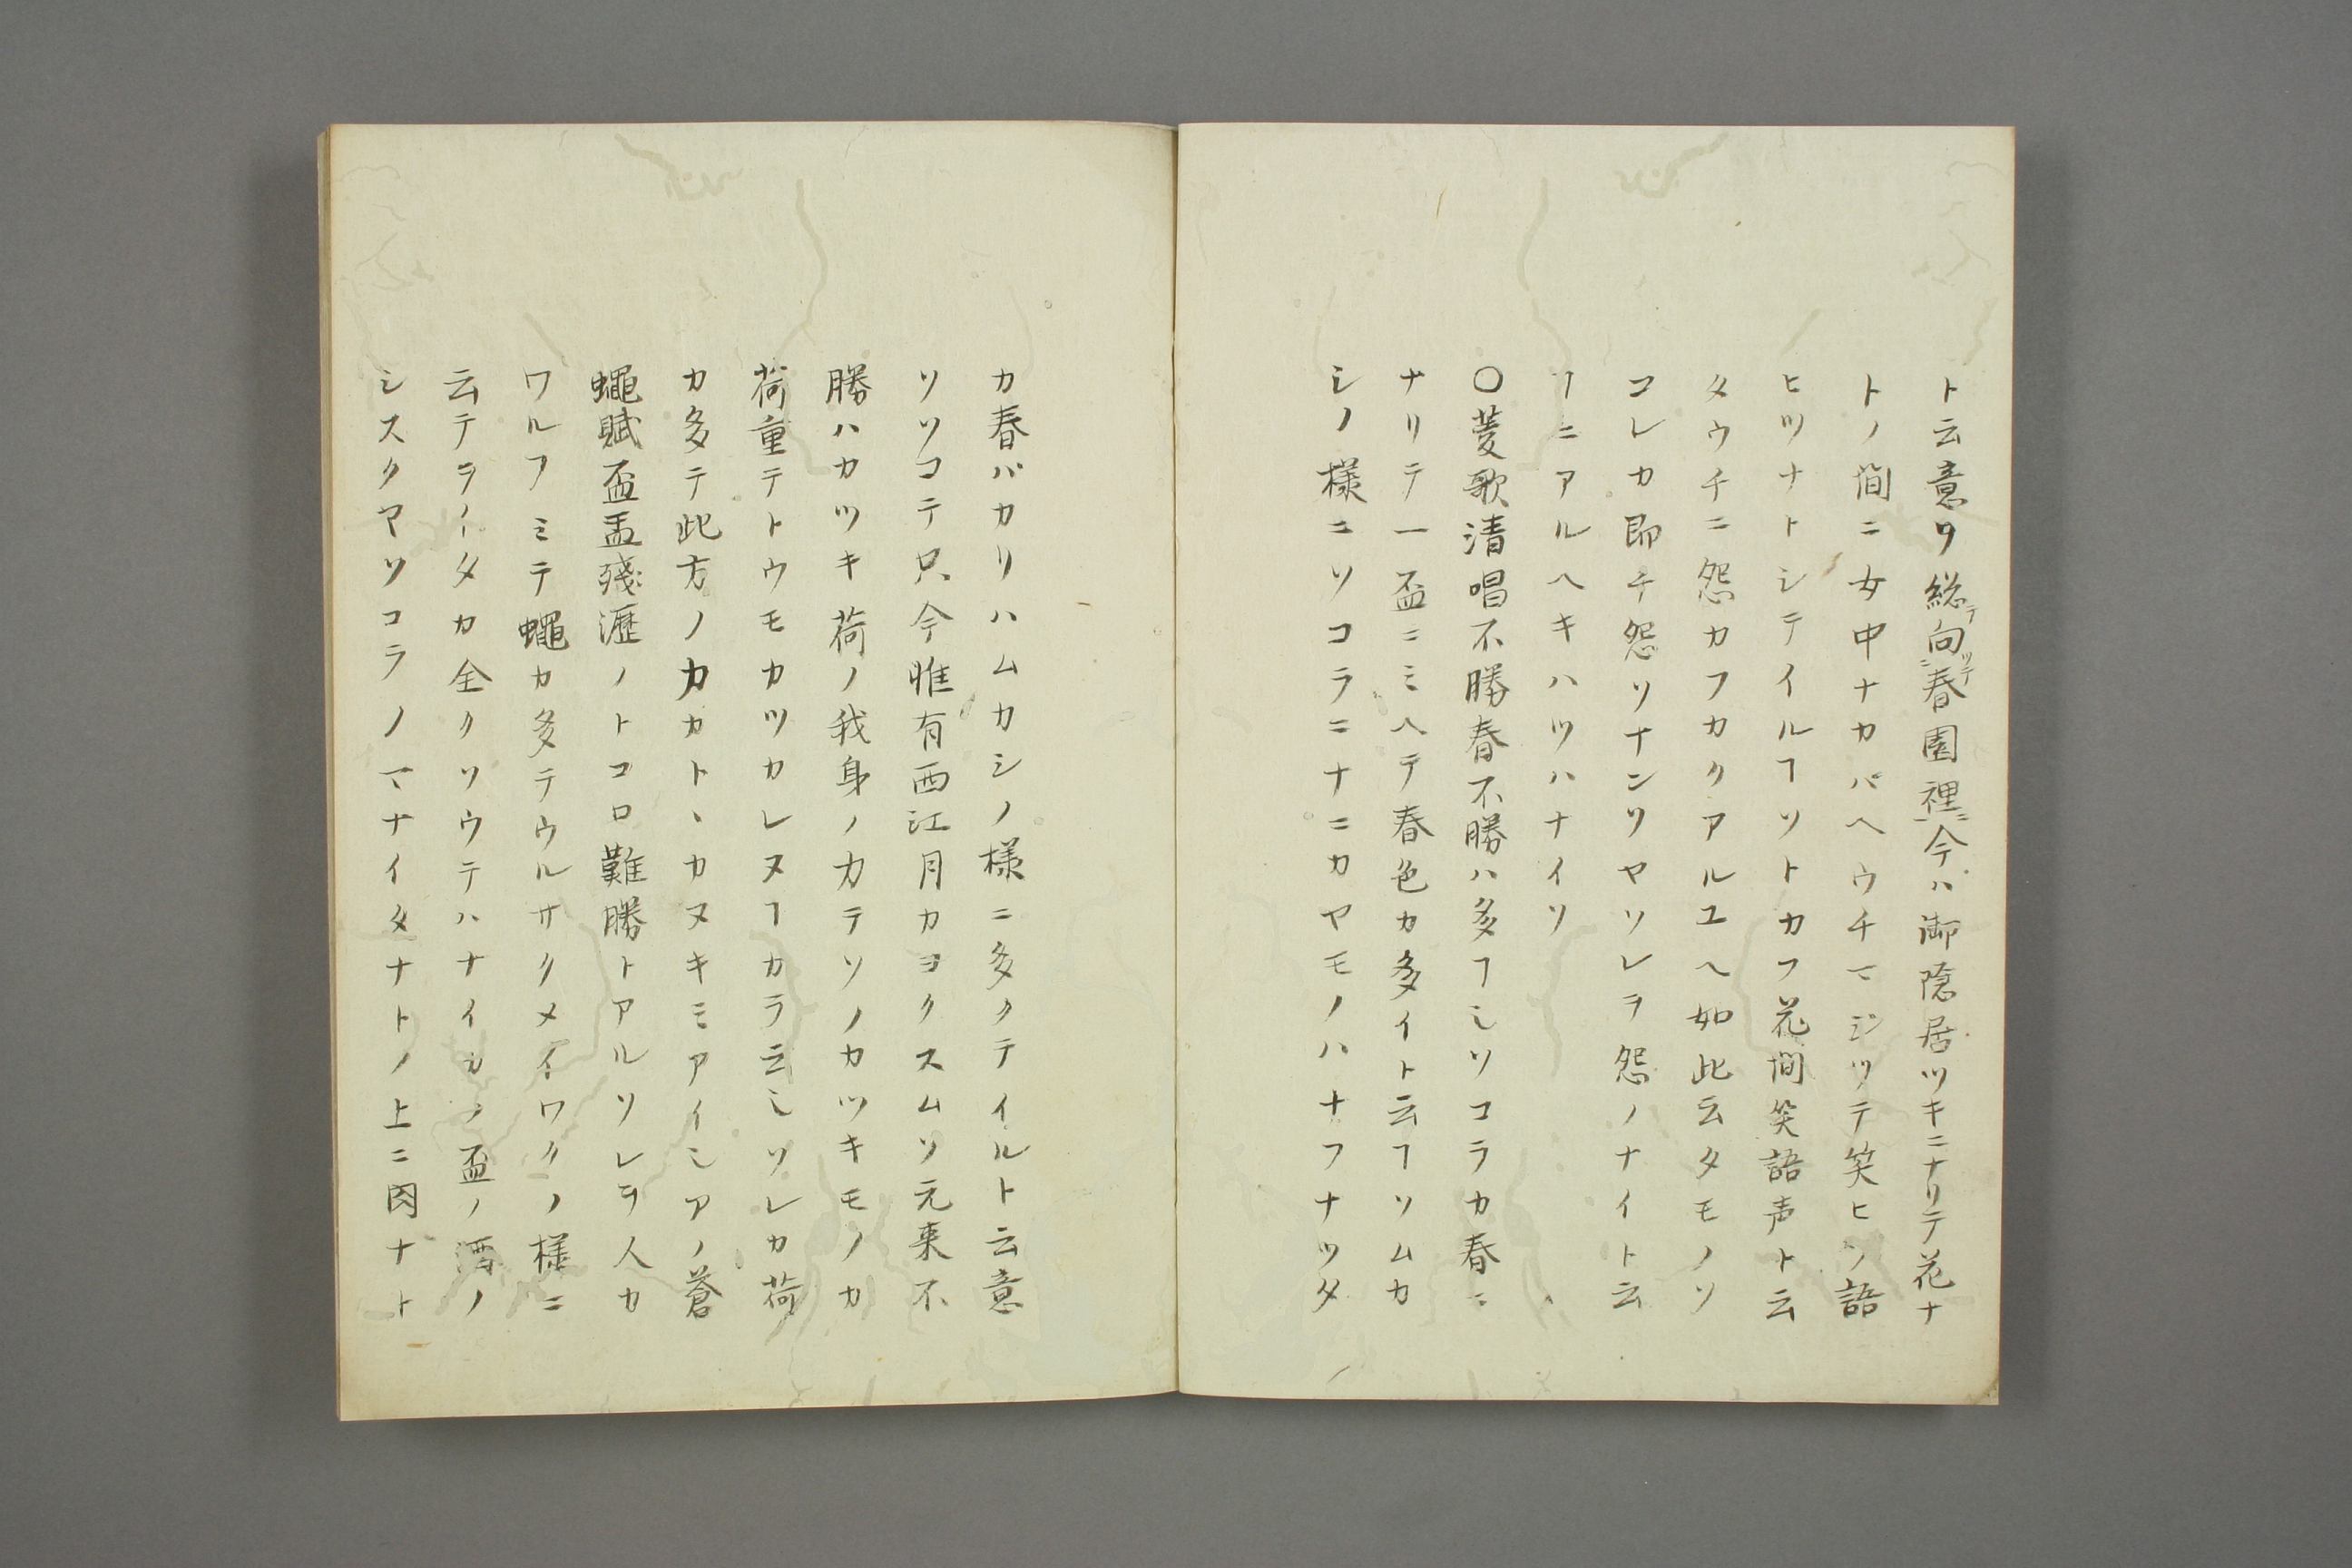 ト云意ソ総テ向ツテ二春園裡ニ一今ハ御隠居ツキニナリテ花ナ
トノ間ニ女中ナカバヘウチマジツテ笑ヒツ語
ヒツナトシテイルヿソトカフ花間笑語声ト云
タウチニ怨カフカクアルユヘ如此云タモノソ
コレカ即チ怨ソナンソヤソレヲ怨ノナイト云
ヿニアルヘキハツハナイソ
〇菱歌清唱不勝春不勝ハ多ヿシソコラカ春ニ
ナリテ一盃ニミヘテ春色カ多イト云ヿソムカ
シノ様ニソコラニナニカヤモノハナフナツタ
カ春バカリハムカシノ様ニ多クテイルト云意
ソソコテ只今惟有西江月カヨクスムソ元来不
勝ハカツキ荷ノ我身ノ力テソノカツキモノカ
荷重テトウモカツカレヌヿカラ云シソレカ荷
カ多テ此方ノ力カトヽカヌキミアイシアノ蒼
蠅賦盃盂残瀝ノトコロ難勝トアルソレヲ人カ
ワルフミテ蠅カ多テウルサクメイワクノ様ニ
云テヲイタカ全クソウテハナイシノ盃ノ酒ノ
シスクヤソコラノマナイタナトノ上ニ肉ナト